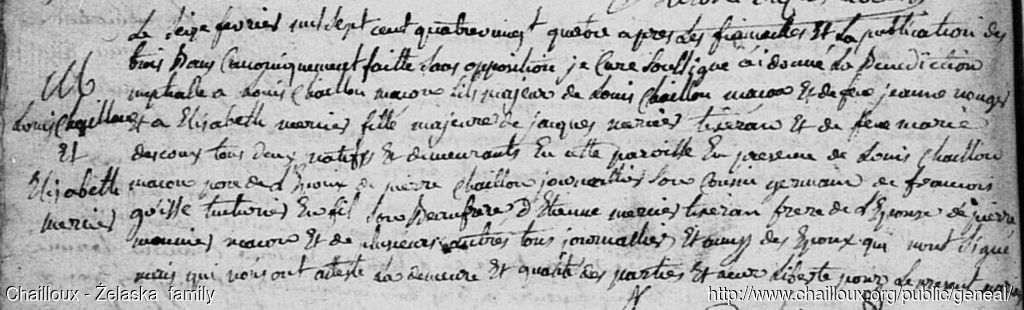 Le seize fevrier mil sept cent quatrevingt quatre apres les fiancailles Et La publication des
trois Bans Canoniquement faitte sans opposition je Curé soussigné ai donné La Benediction
M
nuptialle a Louis Chaillou macon fils majeur de Louis Chaillou macon Et de feue jeanne
Louis Chaillou
Et a Elisabeth mercier fille majeure de jacques mercier tiseran Et de feue marie
Et
descoux tous deux natifs Et demeurants En cette paroisse En presence de Louis Chaillou
Elizabeth
macon pere de L'Epoux de pierre Chaillou journallier son Cousin germain de francois
mercier
En fil son Beaufrere D'Etienne mercier tiseran frere de L'Epouse de pierre
macon Et de plusieurs autres tous journallier Et amys des Epoux qui n'ont signé
mais qui nous ont atteste La demeure Et qualité des parties Et Leur Liberté pour Le present
Chailloux - Żelaska family
http://www.chailloux.org/public/geneal/